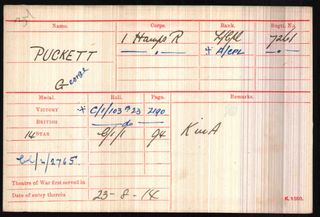 Name. Corps. Rank. Regtl. No.
PUCKETT 1 Hamps R L/Cpl 7261
+ A/CPL
George
Medal. Roll. Page. Remarks.
VICTORY + C/1/103 B 23 2190
BRITISH do do
14 STAR C/1/1 94 K in A
Theatre of War first served in
Date of entry therein 23-8-14 K. 1380.